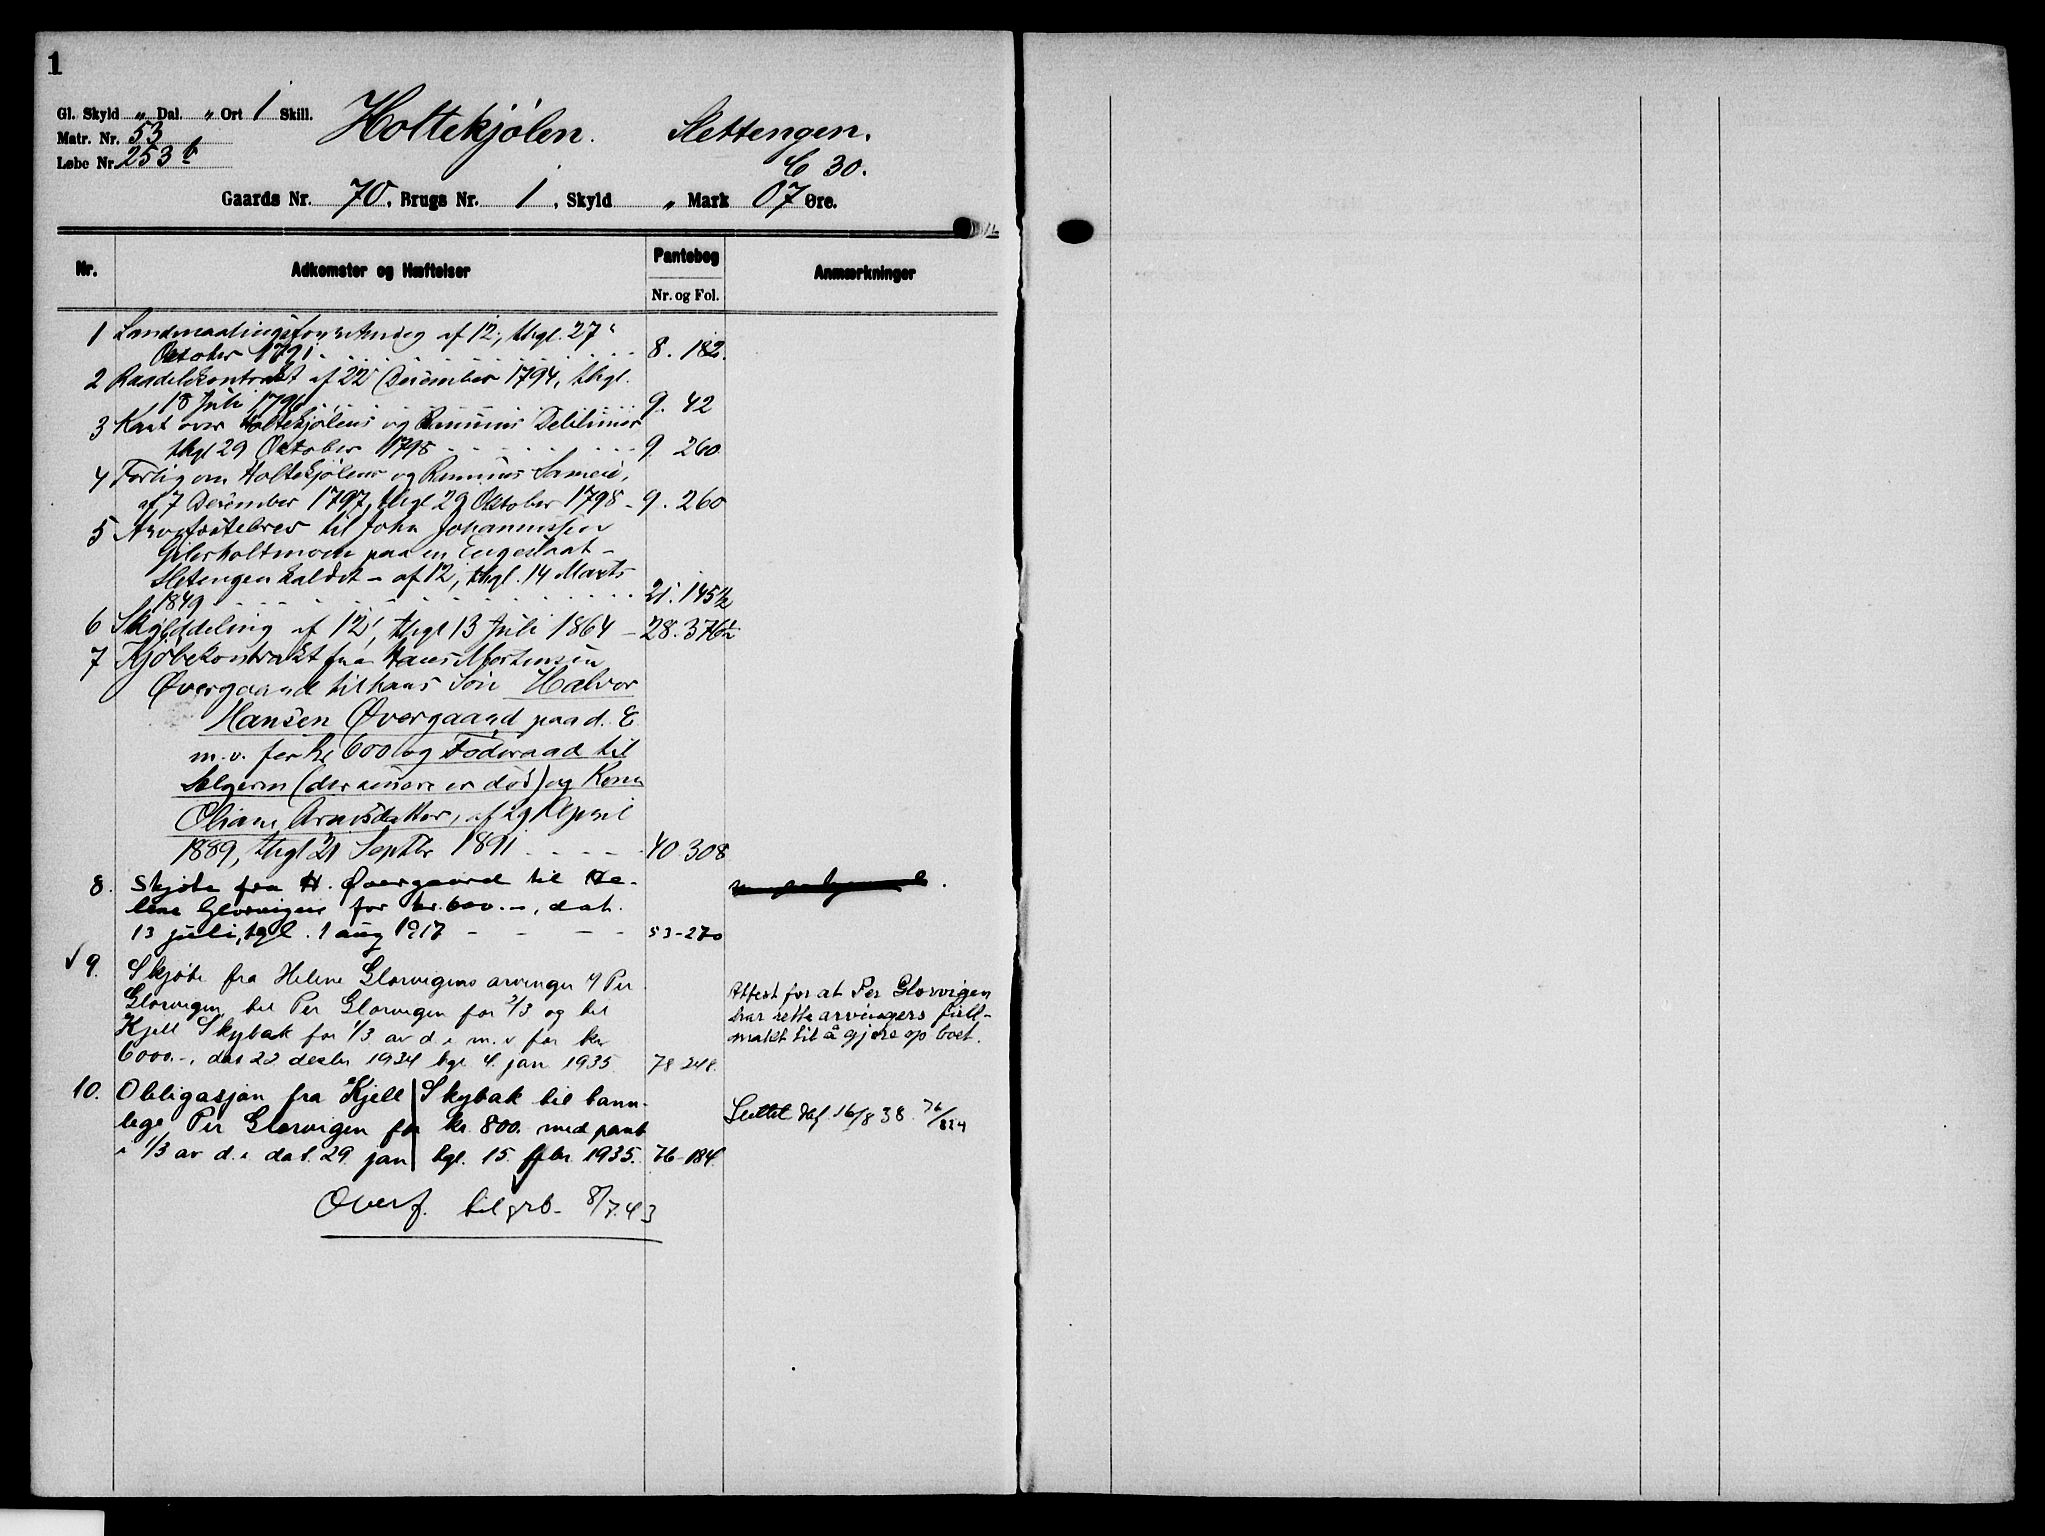 1
Gl. Skyld " Dal. " Ort 1 Skill.
Holtekjølen. Slettengen.
Matr. Nr. 53
Løbe Nr. 253 b
C 30.
Gaards Nr. 70, Brugs Nr. 1, Skyld " Mark 07 Øre.
Nr. Adkomster og Hæftelser Pantebog Nr. og Fol. Anmærkninger
1 Landmaalingsforretning af 12, thgl. 27
Oktober 1791 8. 182.
2 Raadelskontrakt af 22 December 1794, thgl.
18 Juli 1796 9. 42
3 Kart over Holtekjølens og Delelinier
thgl 29 Oktober 1798 9. 260
4 Forlig om Holtekjølens og Sameie,
af 7 December 1797, thgl 29 Oktober 1798 - 9. 260
5 Arvefæstebrev til John Johannessen
paa en Engeslaat -
Sletengen kaldet - af 12, thgl. 14 Marts
1849 21. 145 1/2
6 Skylddeling af 12, thgl 13 Juli 1864 - 28. 376 1/2
7 Kjøbekontrakt fra Hans Mortensen
Øvergaard til hans Søn Halvor
Hansen Øvergaard paa d. E
m.v. for kr 600 og Føderaad til
Sælgeren (der senere er død) og Kone
Oliane Arnesdatter, af 29 April
1889, thgl 21 Septbr 1891 40-308
8. Skjøte fra H. Øvergaard til He-
lene Glorvigen for kr. 600.-, dat.
13 juli, tgl. 1 aug 1917 - - - - 53-270
√ 9. Skjøte fra Helene Glorvigens arvinger v/ Per
Glorvigen til Per Glorvigen for 2/3 og til
Kjell Skybak for 1/3 av d.e m.v for kr
6000.-, dat 22 desbr 1934 tgl 4. jan 1935 78-248.
Attest for at Per Glorvigen
har rette arvingers full-
makt til å gjøre op boet.
10. Obligasjon fra Kjell Skybak til tann-
lege Per Glorvigen for kr. 800. med pant
i 1/3 av d.e dat. 29. jan tgl. 15. febr 1935. 76-184.
Slettet dag. 16/8 38. 76/824
Overf. til grb. 8/7.43